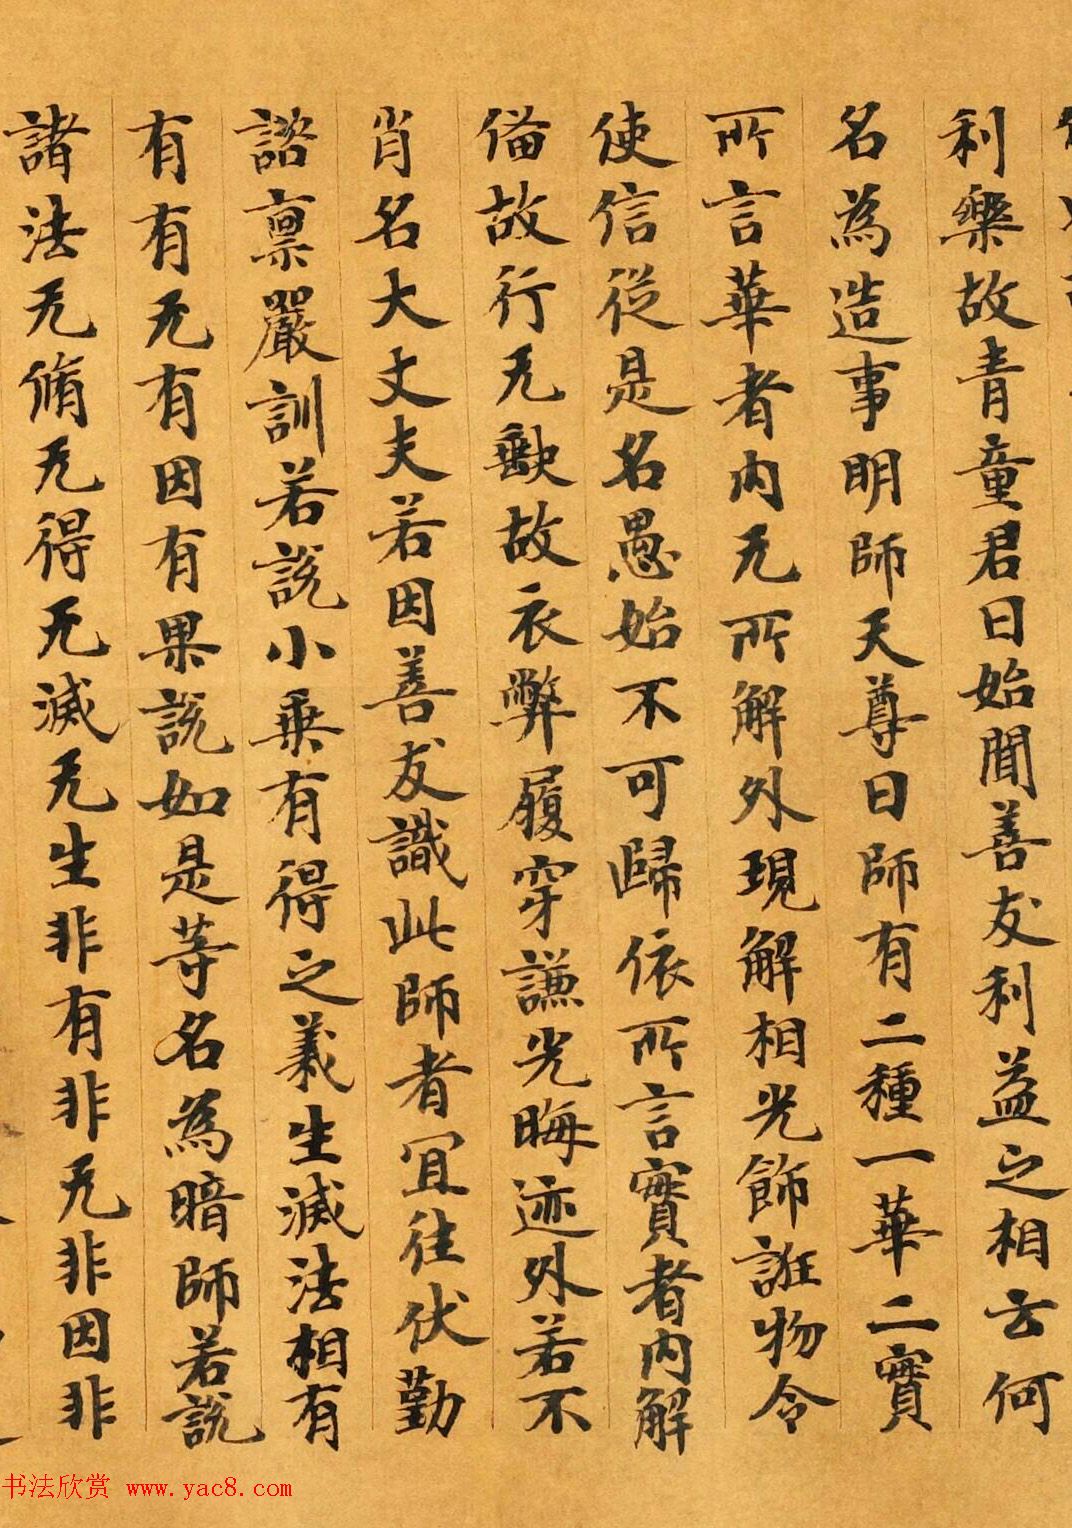 利樂故青童君曰始聞善友利益之相云何
名為造事明師天尊曰師有二種一華二實
所言華者内无所解外現解相光飾誑物令
使信從是名愚始不可歸依所言實者内解
備故行无歝故衣弊履穿謙光晦迹外若不
肖名大丈夫若因善友識此師者宜往伏勤
諮禀嚴訓若說小乗有得之義生滅法相有
有有无有因有果說如是等名為暗師若說
諸法无脩无得无滅无生非有非无非因非
书法欣赏 www.yac8.com